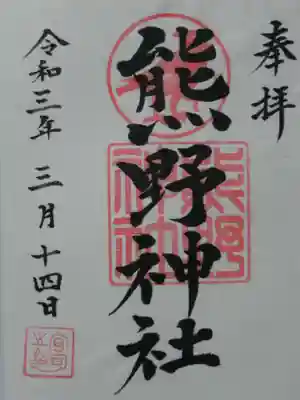 奉拝
熊野神社
令和三年 三月 十四日
熊野
神社